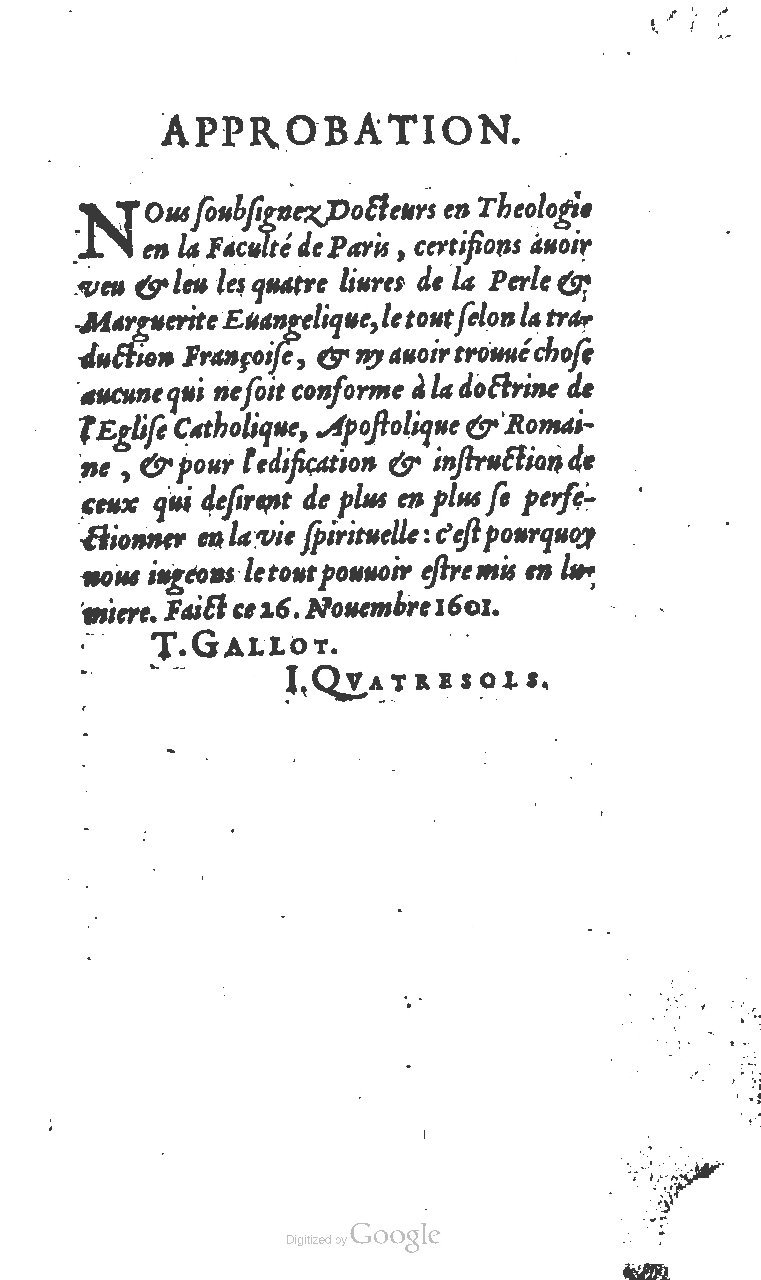 APPROBATION.
NOus soubsignez Docteurs en Theologie
en la Faculté de Paris, certifions auoir
veu & leu les quatre liures de la Perle &
Marguerite Euangelique, le tout selon la tra-
duction Françoise, & ny auoir trouué chose
aucune qui ne soit conforme à la doctrine de
l'Eglise Catholique, Apostolique & Romai-
ne, & pour l'edification & instruction de
ceux qui desirent de plus en plus se perfe-
ctionner en la vie spirituelle: c'est pourquoy
nous iugeons le tout pouuoir estre mis en lu-
miere. Faict ce 26. Nouembre 1601.
T. GALLOT.
I. QVATRESOLS.
Digitized by Google